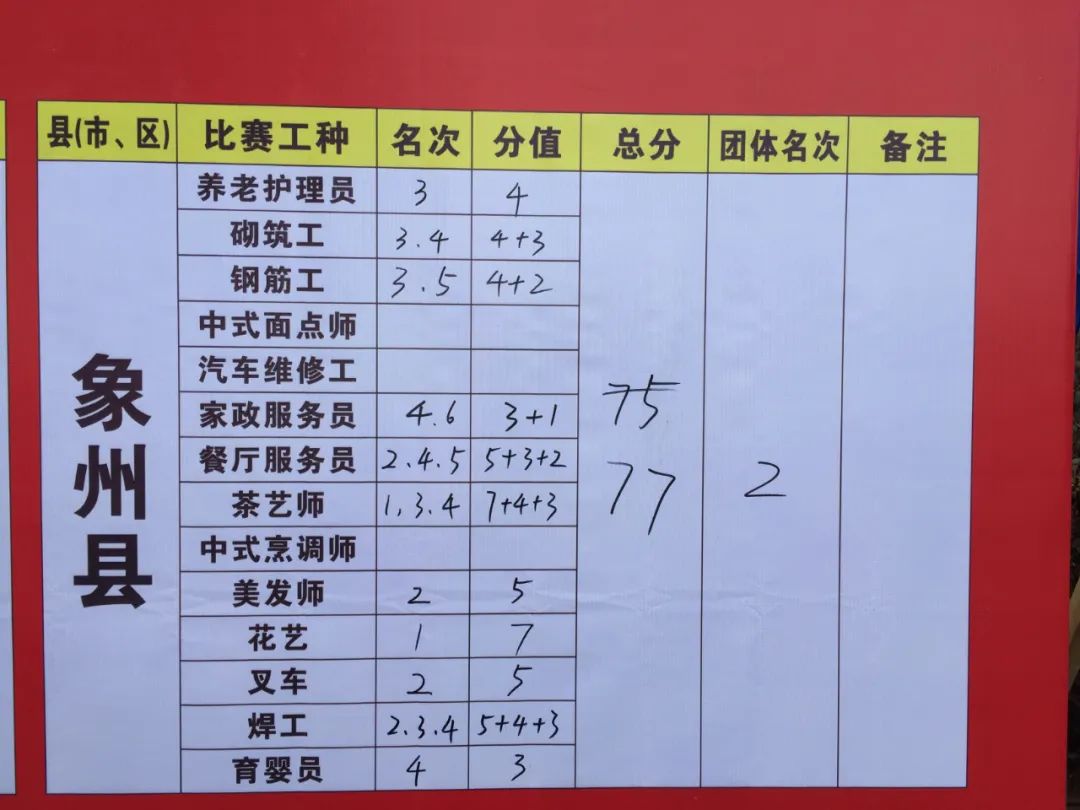 县(市、区) 比赛工种 名次 分值 总分 团体名次 备注
象州县
养老护理员 3 4
砌筑工 3.4 4+3
钢筋工 3.5 4+2
中式面点师
汽车维修工
家政服务员 4.6 3+1
75
餐厅服务员 2.4.5 5+3+2
77 2
茶艺师 1,3.4 7+4+3
中式烹调师
美发师 2 5
花艺 1 7
叉车 2 5
焊工 2.3.4 5+4+3
育婴员 4 3